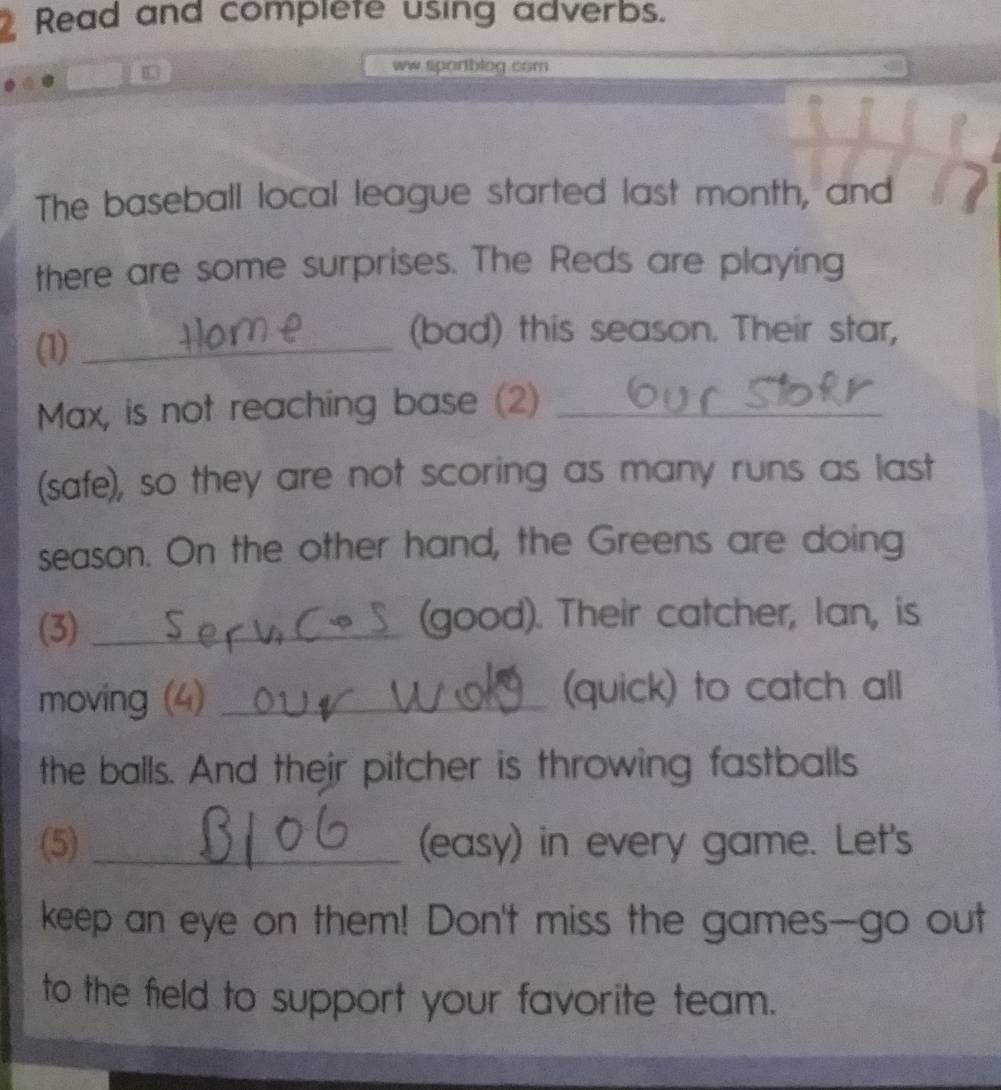 2 Read and complete using adverbs.
ww.sportblog.com
The baseball local league started last month, and
there are some surprises. The Reds are playing
(1) Home (bad) this season. Their star,
Max, is not reaching base (2) our
(safe), so they are not scoring as many runs as last
season. On the other hand, the Greens are doing
(3) (good). Their catcher, Ian, is
moving (4) our (quick) to catch all
the balls. And their pitcher is throwing fastballs
(5) Blog (easy) in every game. Let's
keep an eye on them! Don't miss the games—go out
to the field to support your favorite team.